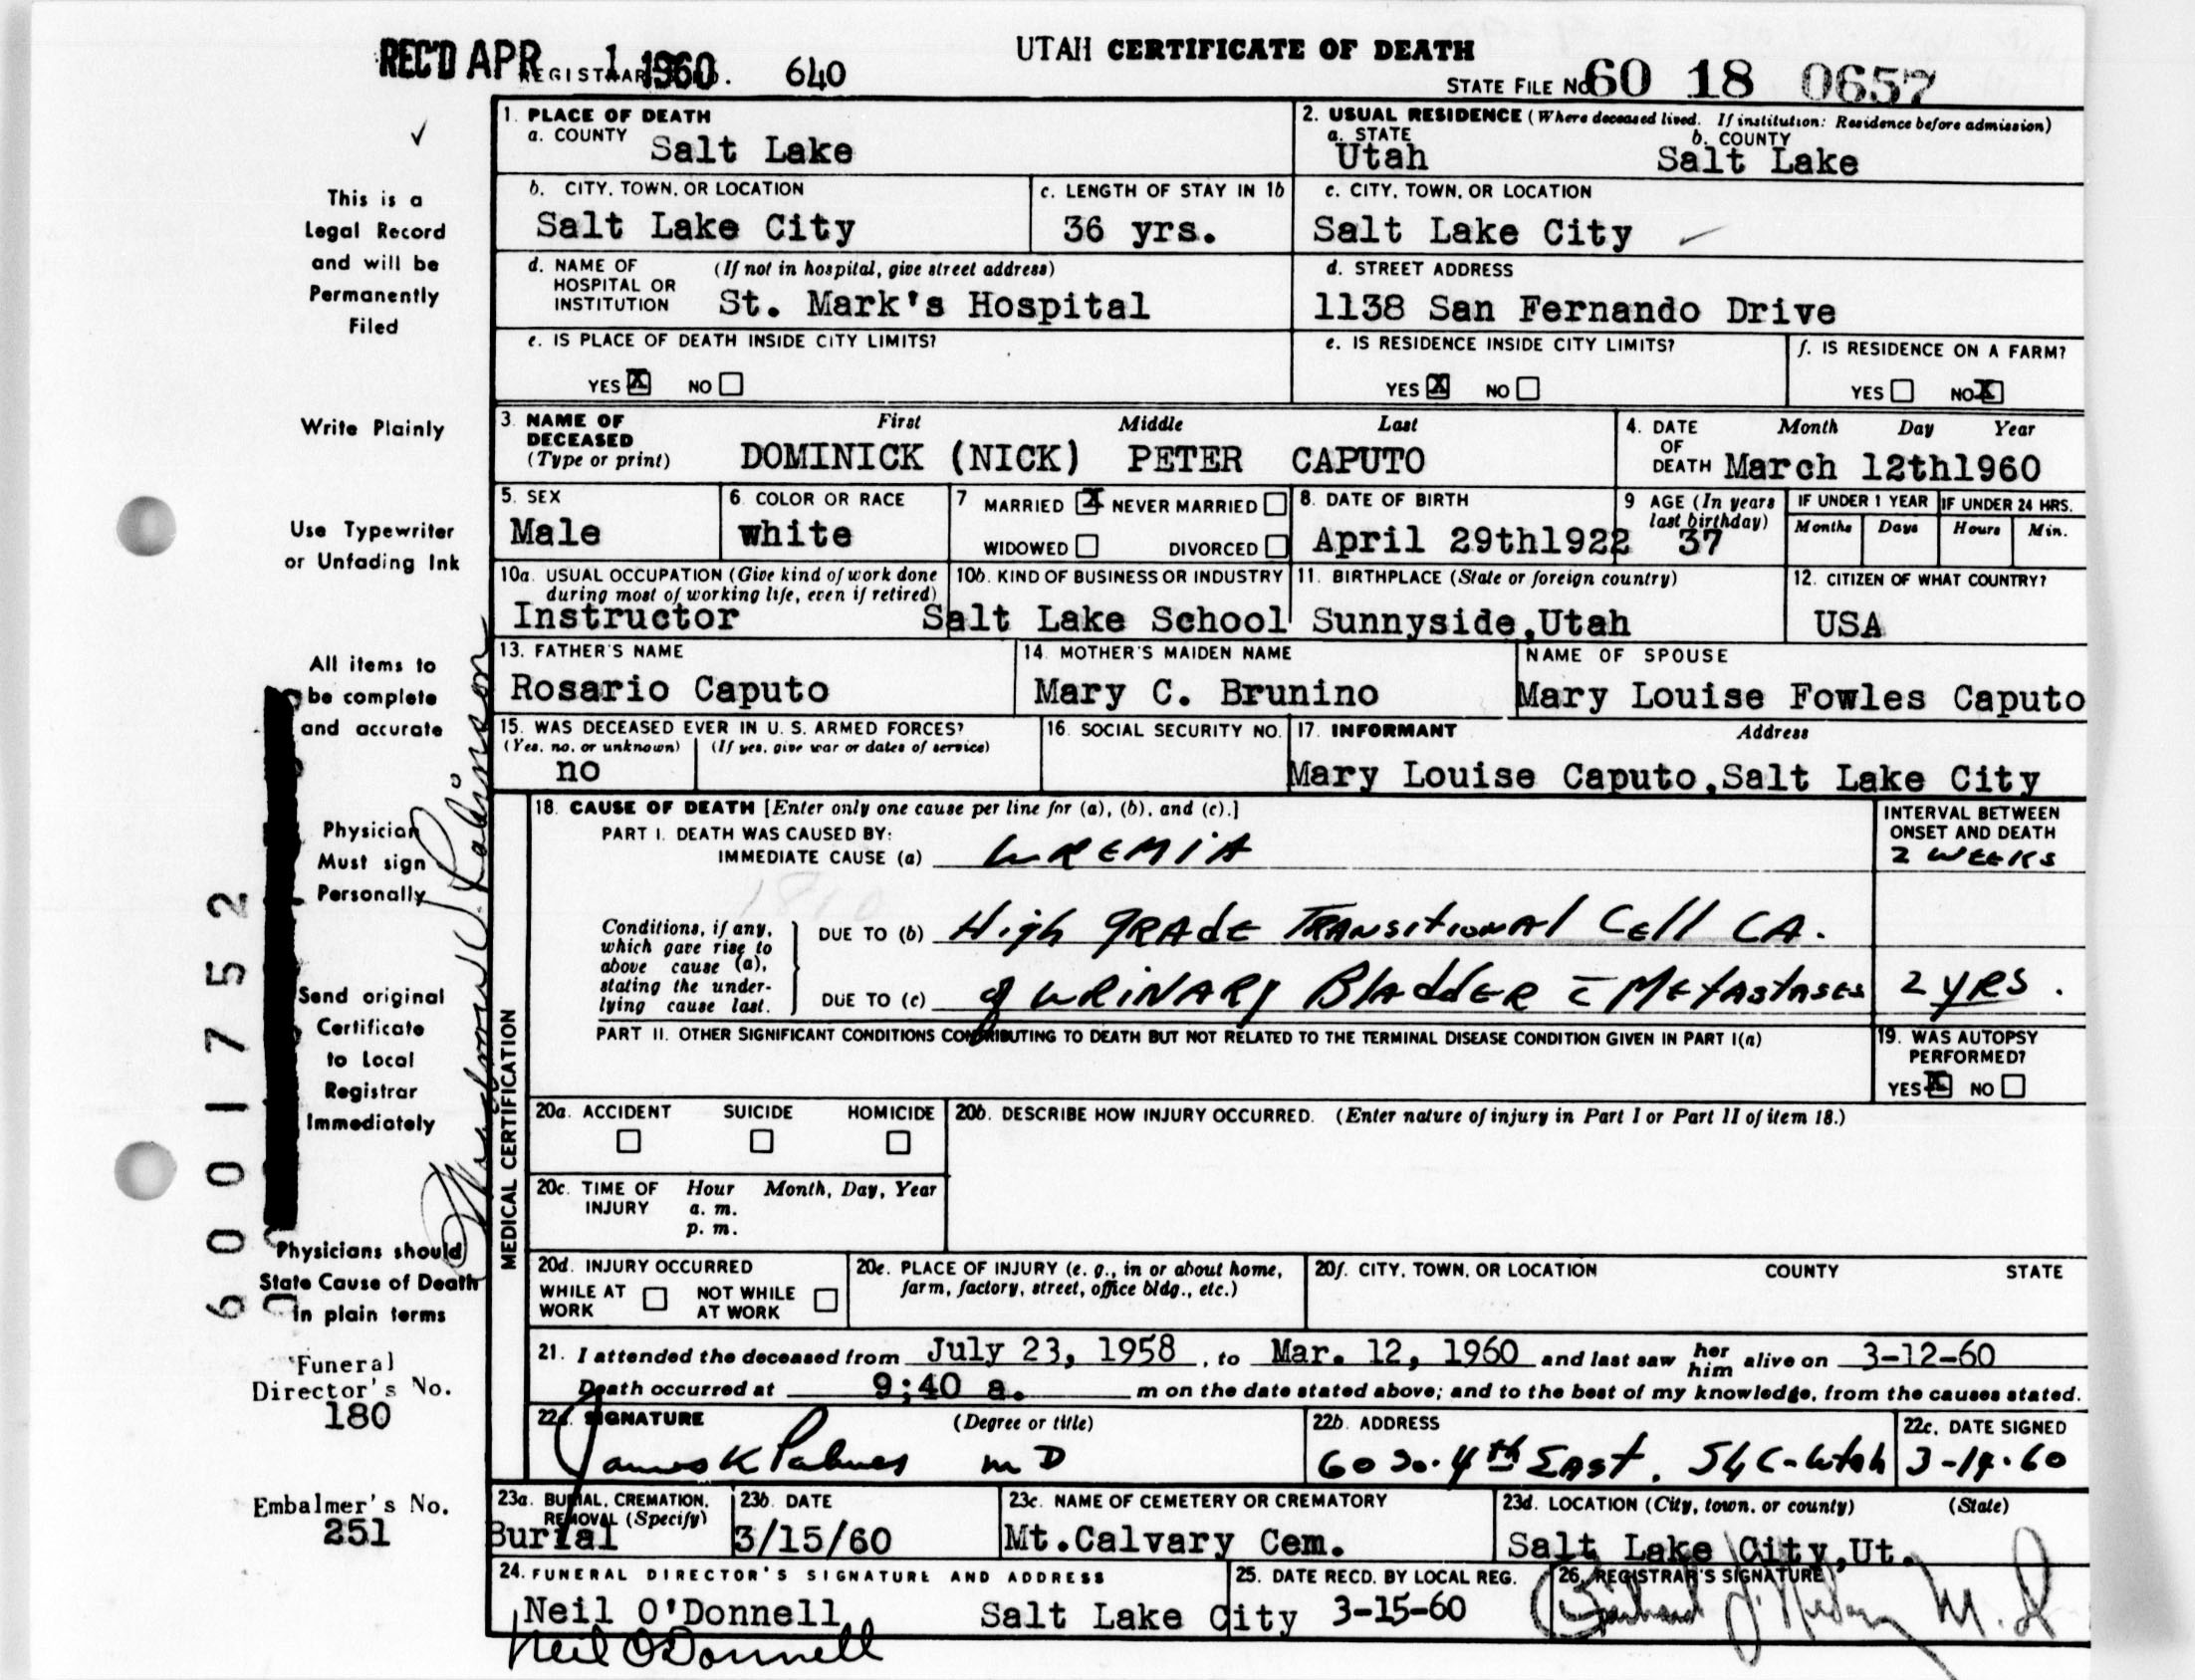 REC'D APR 1 1960
REGISTRAR 640
UTAH CERTIFICATE OF DEATH
STATE FILE No 60 18 0657
1. PLACE OF DEATH
a. COUNTY Salt Lake
2. USUAL RESIDENCE (Where deceased lived. If institution: Residence before admission)
a. STATE Utah b. COUNTY Salt Lake
b. CITY, TOWN, OR LOCATION Salt Lake City
c. LENGTH OF STAY IN 1b 36 yrs.
c. CITY, TOWN, OR LOCATION Salt Lake City
d. NAME OF HOSPITAL OR INSTITUTION (If not in hospital, give street address) St. Mark's Hospital
d. STREET ADDRESS 1138 San Fernando Drive
e. IS PLACE OF DEATH INSIDE CITY LIMITS?
YES X NO
e. IS RESIDENCE INSIDE CITY LIMITS?
YES X NO
f. IS RESIDENCE ON A FARM?
YES NO X
3. NAME OF DECEASED (Type or print) First Middle Last
DOMINICK (NICK) PETER CAPUTO
4. DATE OF DEATH Month Day Year
March 12th1960
5. SEX Male
6. COLOR OR RACE white
7 MARRIED X NEVER MARRIED
WIDOWED DIVORCED
8. DATE OF BIRTH April 29th1922
9 AGE (In years last birthday) 37
IF UNDER 1 YEAR Months Days
IF UNDER 24 HRS. Hours Min.
10a. USUAL OCCUPATION (Give kind of work done during most of working life, even if retired) Instructor
10b. KIND OF BUSINESS OR INDUSTRY Salt Lake School
11. BIRTHPLACE (State or foreign country) Sunnyside,Utah
12. CITIZEN OF WHAT COUNTRY? USA
13. FATHER'S NAME Rosario Caputo
14. MOTHER'S MAIDEN NAME Mary C. Brunino
NAME OF SPOUSE Mary Louise Fowles Caputo
15. WAS DECEASED EVER IN U. S. ARMED FORCES?
(Yes, no, or unknown) (If yes, give war or dates of service)
no
16. SOCIAL SECURITY NO.
17. INFORMANT Address
Mary Louise Caputo,Salt Lake City
MEDICAL CERTIFICATION
18. CAUSE OF DEATH [Enter only one cause per line for (a), (b), and (c).]
INTERVAL BETWEEN ONSET AND DEATH
PART I. DEATH WAS CAUSED BY:
IMMEDIATE CAUSE (a) UREMIA 2 WEEKS
1810
Conditions, if any, which gave rise to above cause (a), stating the underlying cause last.
DUE TO (b) High GRADE TRANSitionAl CEll CA.
DUE TO (c) of URINARY BlAddER c̄ METASTASES 2 YRS.
PART II. OTHER SIGNIFICANT CONDITIONS CONTRIBUTING TO DEATH BUT NOT RELATED TO THE TERMINAL DISEASE CONDITION GIVEN IN PART I(a)
19. WAS AUTOPSY PERFORMED?
YES X NO
20a. ACCIDENT SUICIDE HOMICIDE
20b. DESCRIBE HOW INJURY OCCURRED. (Enter nature of injury in Part I or Part II of item 18.)
20c. TIME OF INJURY Hour Month, Day, Year
a. m.
p. m.
20d. INJURY OCCURRED
WHILE AT WORK NOT WHILE AT WORK
20e. PLACE OF INJURY (e. g., in or about home, farm, factory, street, office bldg., etc.)
20f. CITY, TOWN, OR LOCATION COUNTY STATE
21. I attended the deceased from July 23, 1958, to Mar. 12, 1960 and last saw her him alive on 3-12-60
Death occurred at 9;40 a. m on the date stated above; and to the best of my knowledge, from the causes stated.
22a. SIGNATURE (Degree or title)
James K Palmer MD
22b. ADDRESS
60 So. 4th East, SLC-Utah
22c. DATE SIGNED
3-14-60
23a. BURIAL, CREMATION, REMOVAL (Specify) Burial
23b. DATE 3/15/60
23c. NAME OF CEMETERY OR CREMATORY Mt.Calvary Cem.
23d. LOCATION (City, town, or county) (State)
Salt Lake City,Ut.
24. FUNERAL DIRECTOR'S SIGNATURE AND ADDRESS
Neil O'Donnell Salt Lake City
Neil O'Donnell
25. DATE RECD. BY LOCAL REG. 3-15-60
26. REGISTRAR'S SIGNATURE
M.D
This is a
Legal Record
and will be
Permanently
Filed
Write Plainly
Use Typewriter
or Unfading Ink
All items to
be complete
and accurate
Physician
Must sign
Personally
Send original
Certificate
to Local
Registrar
Immediately
Physicians should
State Cause of Death
in plain terms
Funeral
Director's No.
180
Embalmer's No.
251
6001752